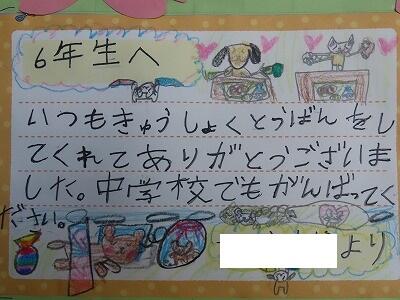 6年生へ
いつもきゅうしょくとうばんをし
てくれてありがとうございま
した。中学校でもがんばってく
ださい。
より